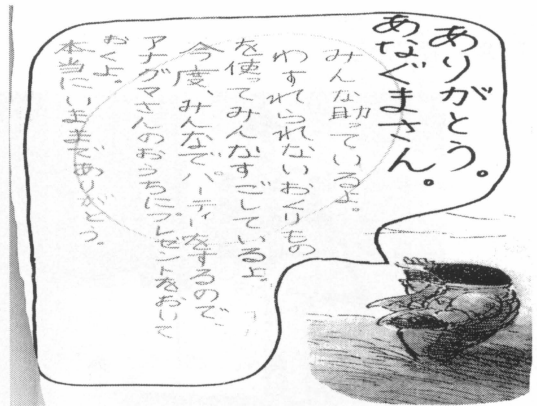 ありがとう。
あなぐまさん。
みんな助っているよ。
わすれられないおくりもの
を使ってみんなすごしているよ。
今度、みんなでパーティーをするので、
アナグマさんのおうちにプレゼントをおいて
おくよ。
本当にいままでありがとう。